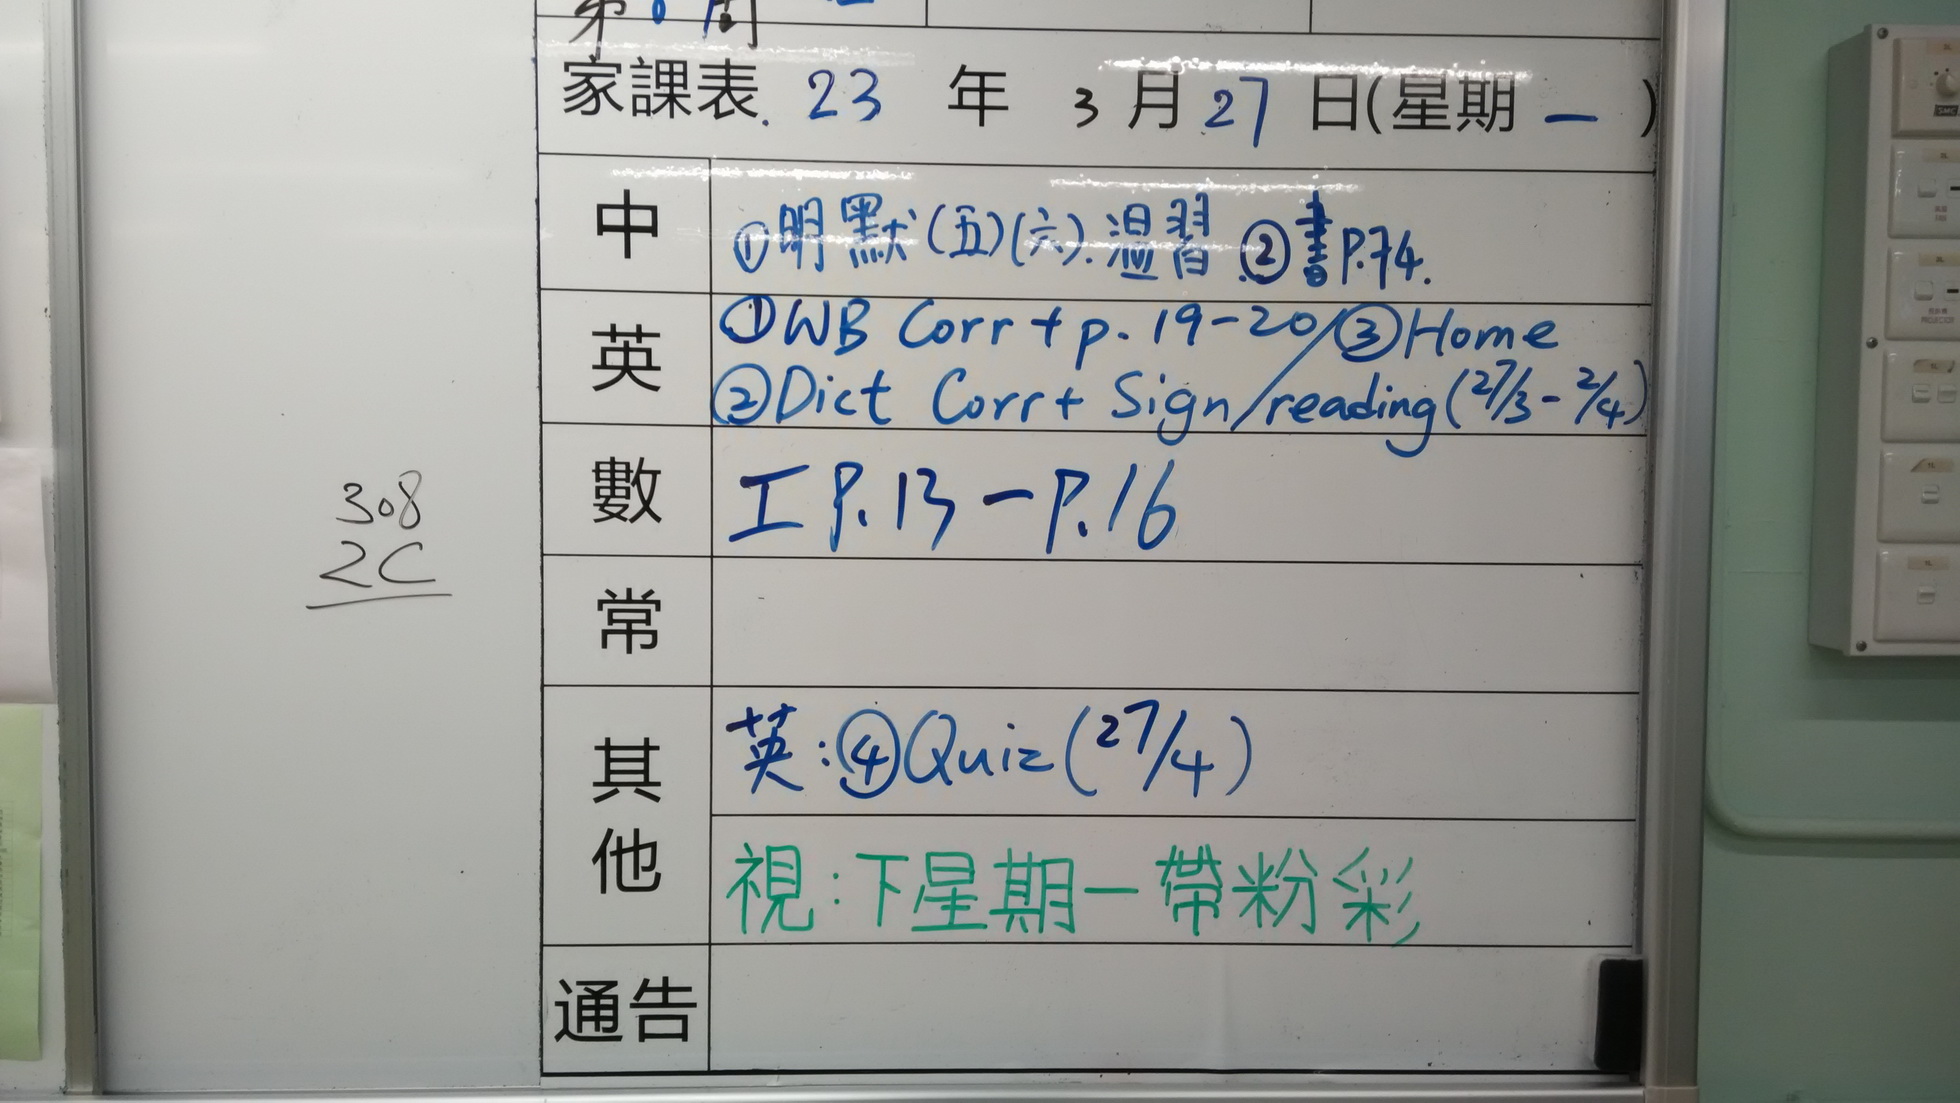 家課表. 23 年 3 月 27 日(星期 一 )
中
①明默(五)(六).温習.②書P.74.
英
①WB Corr + p. 19-20/③Home
②Dict Corr + Sign/reading(27/3 - 2/4)
數
工 P.13 - P.16
308
2C
常
其他
英:④Quiz(27/4)
視:下星期一帶粉彩
通告